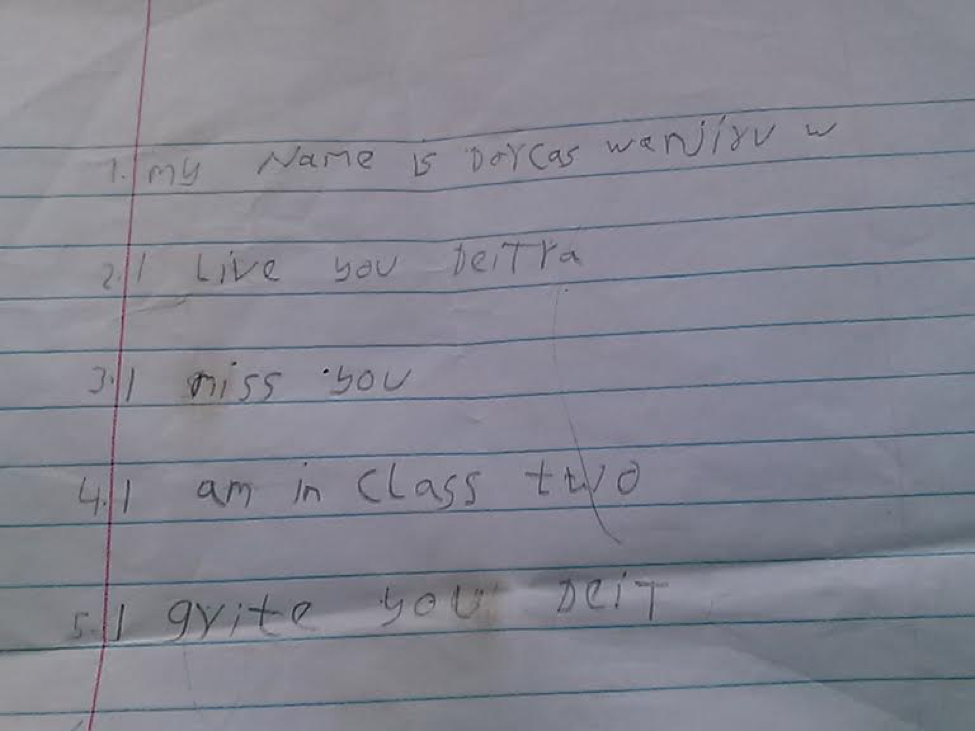 1. my Name is Dorcas wanjiru w
2. I Live you Deitra
3. I miss you
4. I am in Class two
5. I grite you Deit